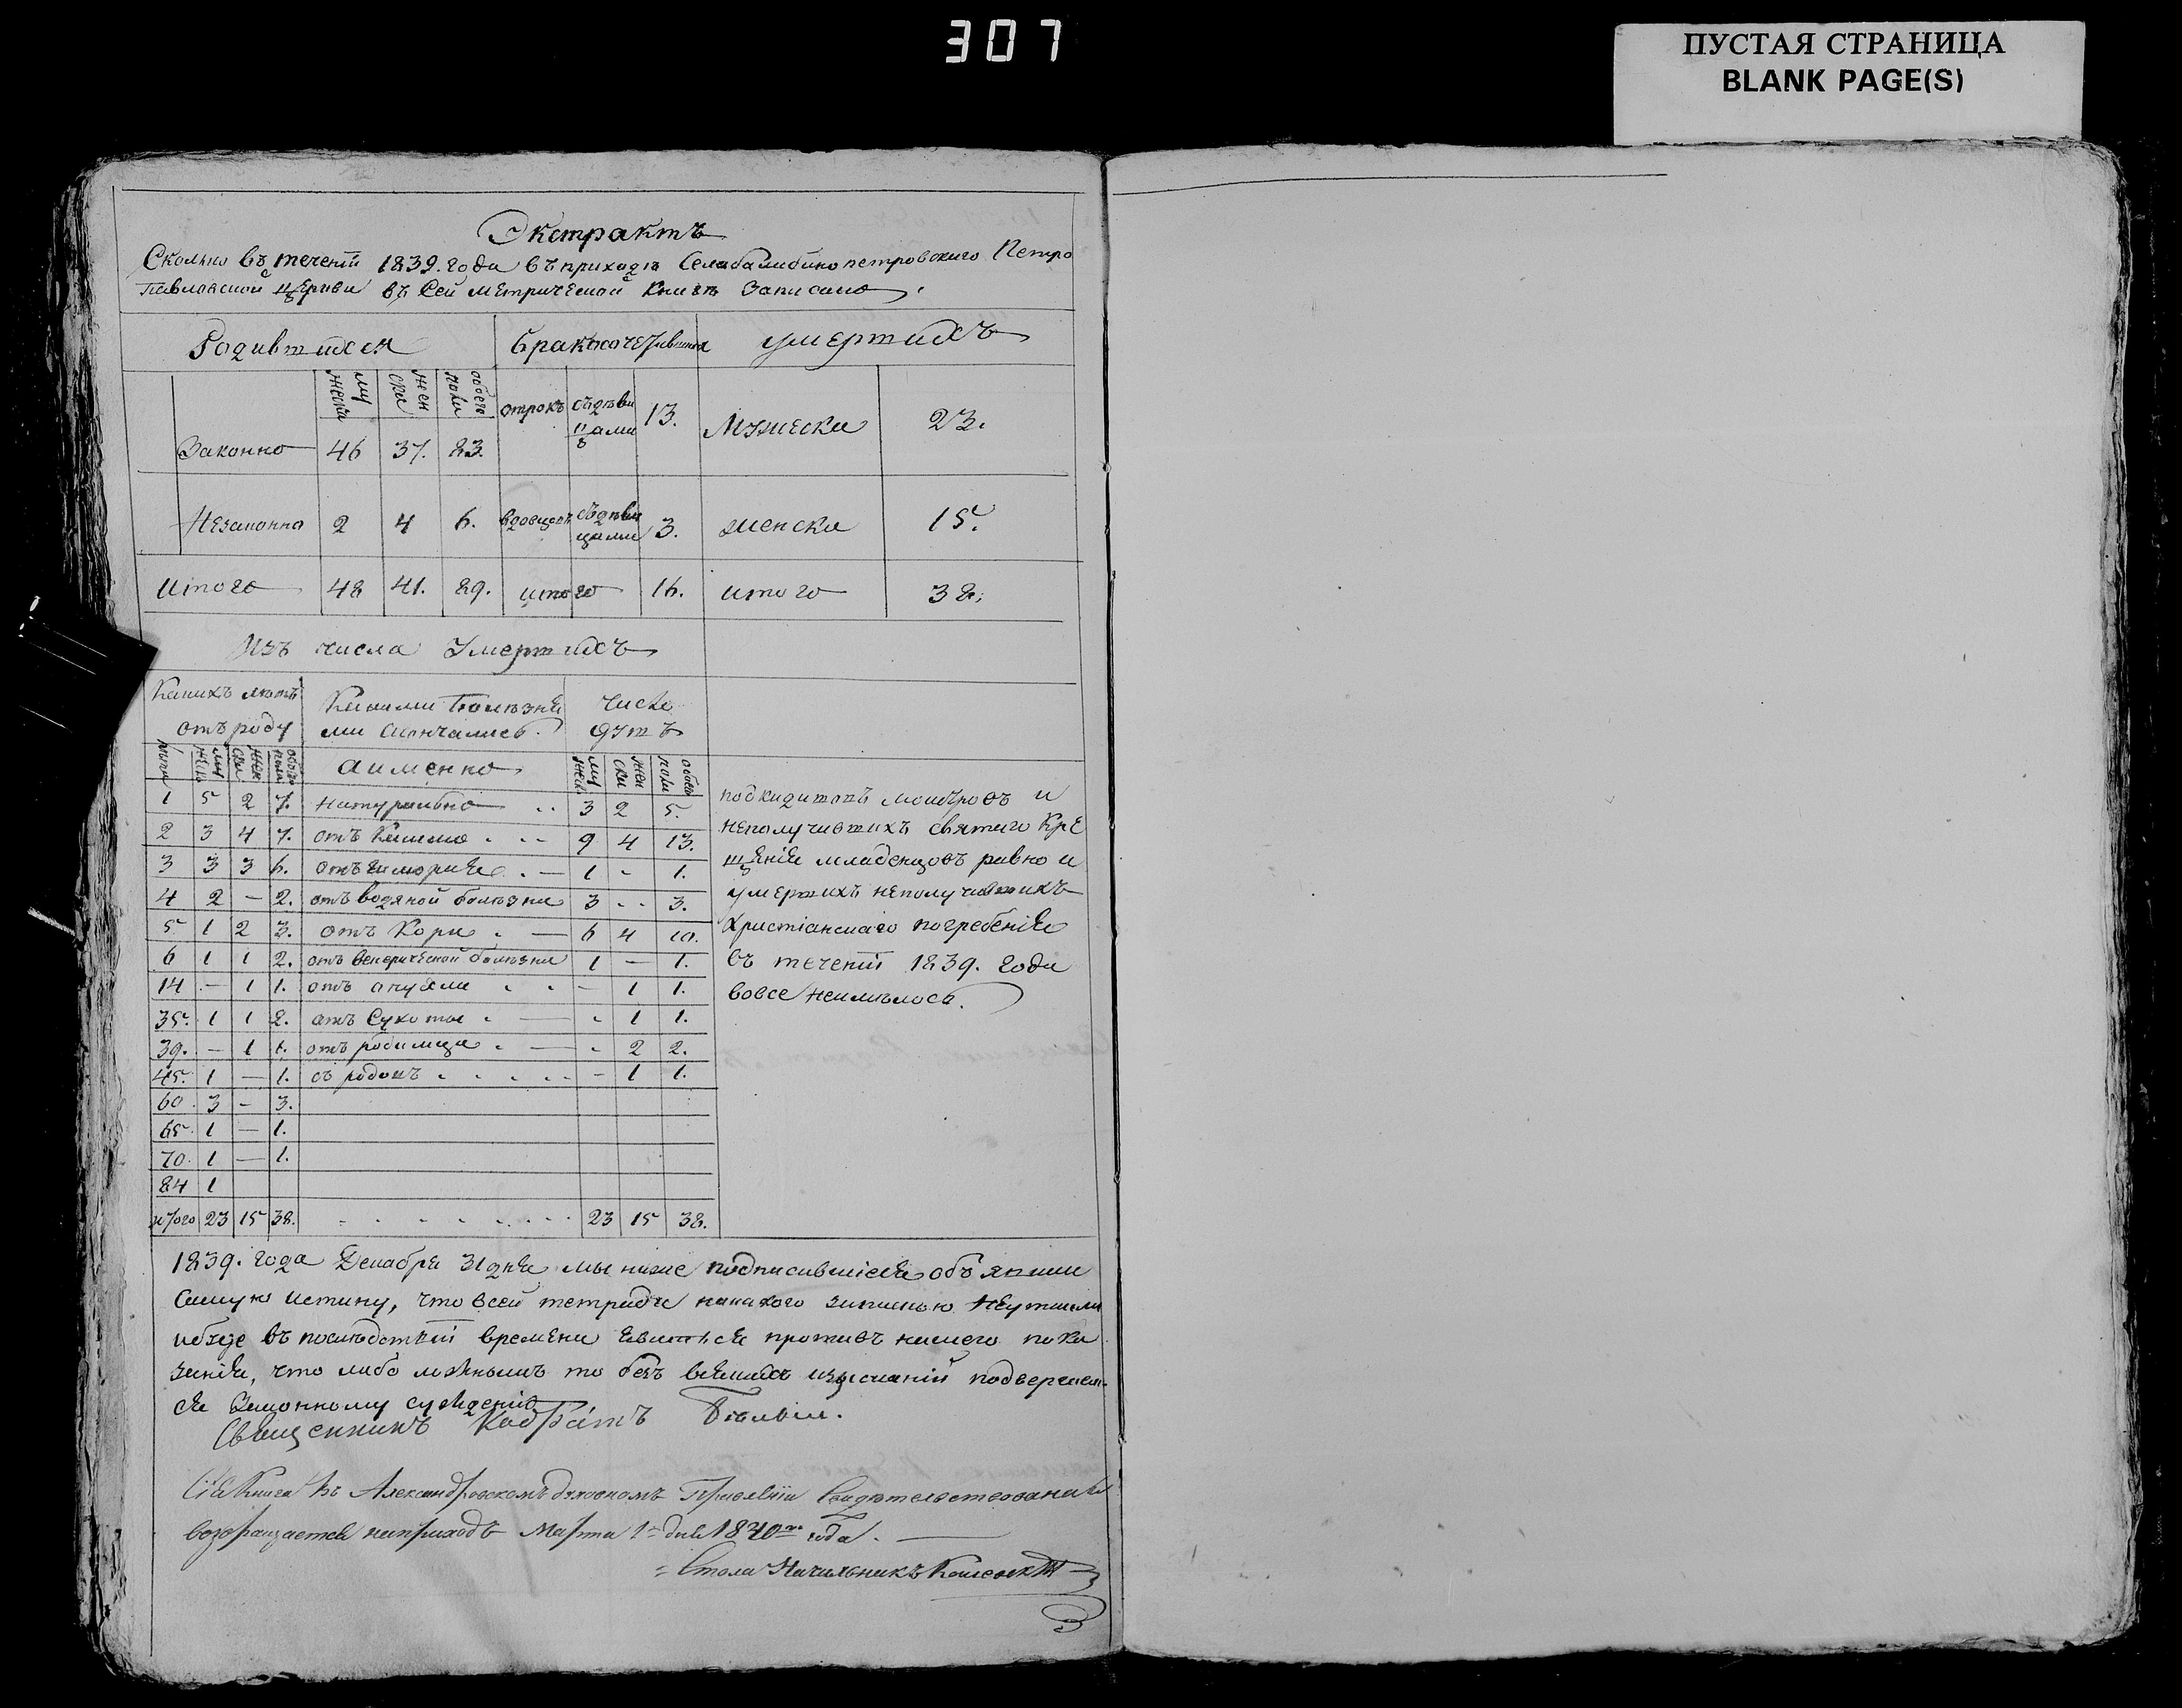 307
ПУСТАЯ СТРАНИЦА
BLANK PAGE(S)
Экстрактъ
Сколько въ теченіи 1839. года въ приходѣ Села петровскаго Петро
Павловской церкви въ Сей Метрической Книгѣ Записано.
Родившихся бракосочетавшихся умершихъ
мужеска женска обоего пола отрокъ съ дѣвицами 13. Мужеска 23.
Законно 46 37. 83.
Незаконно 2 4 6. вдовцовъ съ дѣвицами 3. женска 15.
Итого 48 41. 89. итого 16. итого 38.
Изъ числа Умершихъ
Какихъ лѣтъ отъ роду Какими Болѣзнями скончались. Число душъ
лѣта мужеска женска обоего пола а именно мужеска женска обоего пола
1 5 2 7. натурально 3 2 5.
2 3 4 7. отъ Кашлю 9 4 13.
3 3 3 6. отъ 1 - 1.
4 2 - 2. отъ водяной болѣзни 3 - - 3.
5 1 2 3. отъ Кори 6 4 10.
6 1 1 2. отъ венерической болѣзни 1 - 1.
14 - 1 1. отъ опухоли - 1 1.
35. 1 1 2. отъ Сухоты - 1 1.
39. - 1 1. отъ родимца - 2 2.
45. 1 - 1. съ родовъ - 1 1.
60. 3 - 3.
65. 1 - 1.
70. 1 - 1.
84 1
итого 23 15 38. 23 15 38.
подкидышовъ и
неполучившихъ святаго Кре
щенія младенцовъ равно и
умершихъ неполучившихъ
Христіанскаго погребенія
въ теченіи 1839. года
вовсе неимѣлось.
1839. года Декабря 31 дня мы ниже подписавшіеся объявили
самую истину, что всей тетради никакого записью неутаили
въ послѣдствіи времени явиться противъ нашего пока
занія, что либо ложнымъ то безъ всякихъ изысканій подвергаем-
ся Законному сужденію
Священникъ Кодратъ
Сія Книга въ Александровскомъ духовномъ Правленіи Свидѣтельствована и
возвращается на приходъ Марта 1 дня 1840го года.
Стола Начальникъ